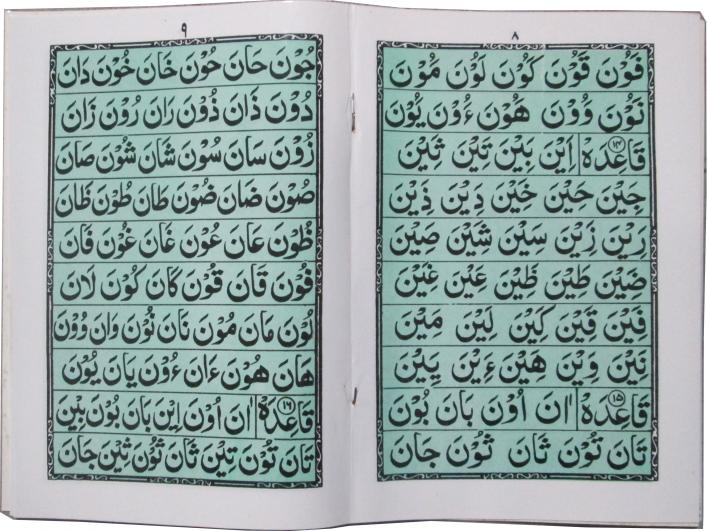 ٨
فَوْنَ قَوْنَ كَوْنَ لَوْنَ مَوْنَ
نَوْنَ وَوْنَ هَوْنَ ءَوْنَ يَوْنَ
قَاعِدَه ١٤ اَيْنَ بَيْنَ تَيْنَ ثَيْنَ
جَيْنَ حَيْنَ خَيْنَ دَيْنَ ذَيْنَ
رَيْنَ زَيْنَ سَيْنَ شَيْنَ صَيْنَ
ضَيْنَ طَيْنَ ظَيْنَ عَيْنَ غَيْنَ
فَيْنَ قَيْنَ كَيْنَ لَيْنَ مَيْنَ
نَيْنَ وَيْنَ هَيْنَ ءَيْنَ يَيْنَ
قَاعِدَه ١٥ اٰنَ اُوْنَ بَانَ بُوْنَ
تَانَ تُوْنَ ثَانَ ثُوْنَ جَانَ
٩
جُوْنَ حَانَ حُوْنَ خَانَ خُوْنَ دَانَ
دُوْنَ ذَانَ ذُوْنَ رَانَ رُوْنَ زَانَ
زُوْنَ سَانَ سُوْنَ شَانَ شُوْنَ صَانَ
صُوْنَ ضَانَ ضُوْنَ طَانَ طُوْنَ ظَانَ
ظُوْنَ عَانَ عُوْنَ غَانَ غُوْنَ فَانَ
فُوْنَ قَانَ قُوْنَ كَانَ كُوْنَ لَانَ
لُوْنَ مَانَ مُوْنَ نَانَ نُوْنَ وَانَ وُوْنَ
هَانَ هُوْنَ ءَانَ ءُوْنَ يَانَ يُوْنَ
قَاعِدَه ١٦ اٰنَ اُوْنَ اِيْنَ بَانَ بُوْنَ بِيْنَ
تَانَ تُوْنَ تِيْنَ ثَانَ ثُوْنَ ثِيْنَ جَانَ